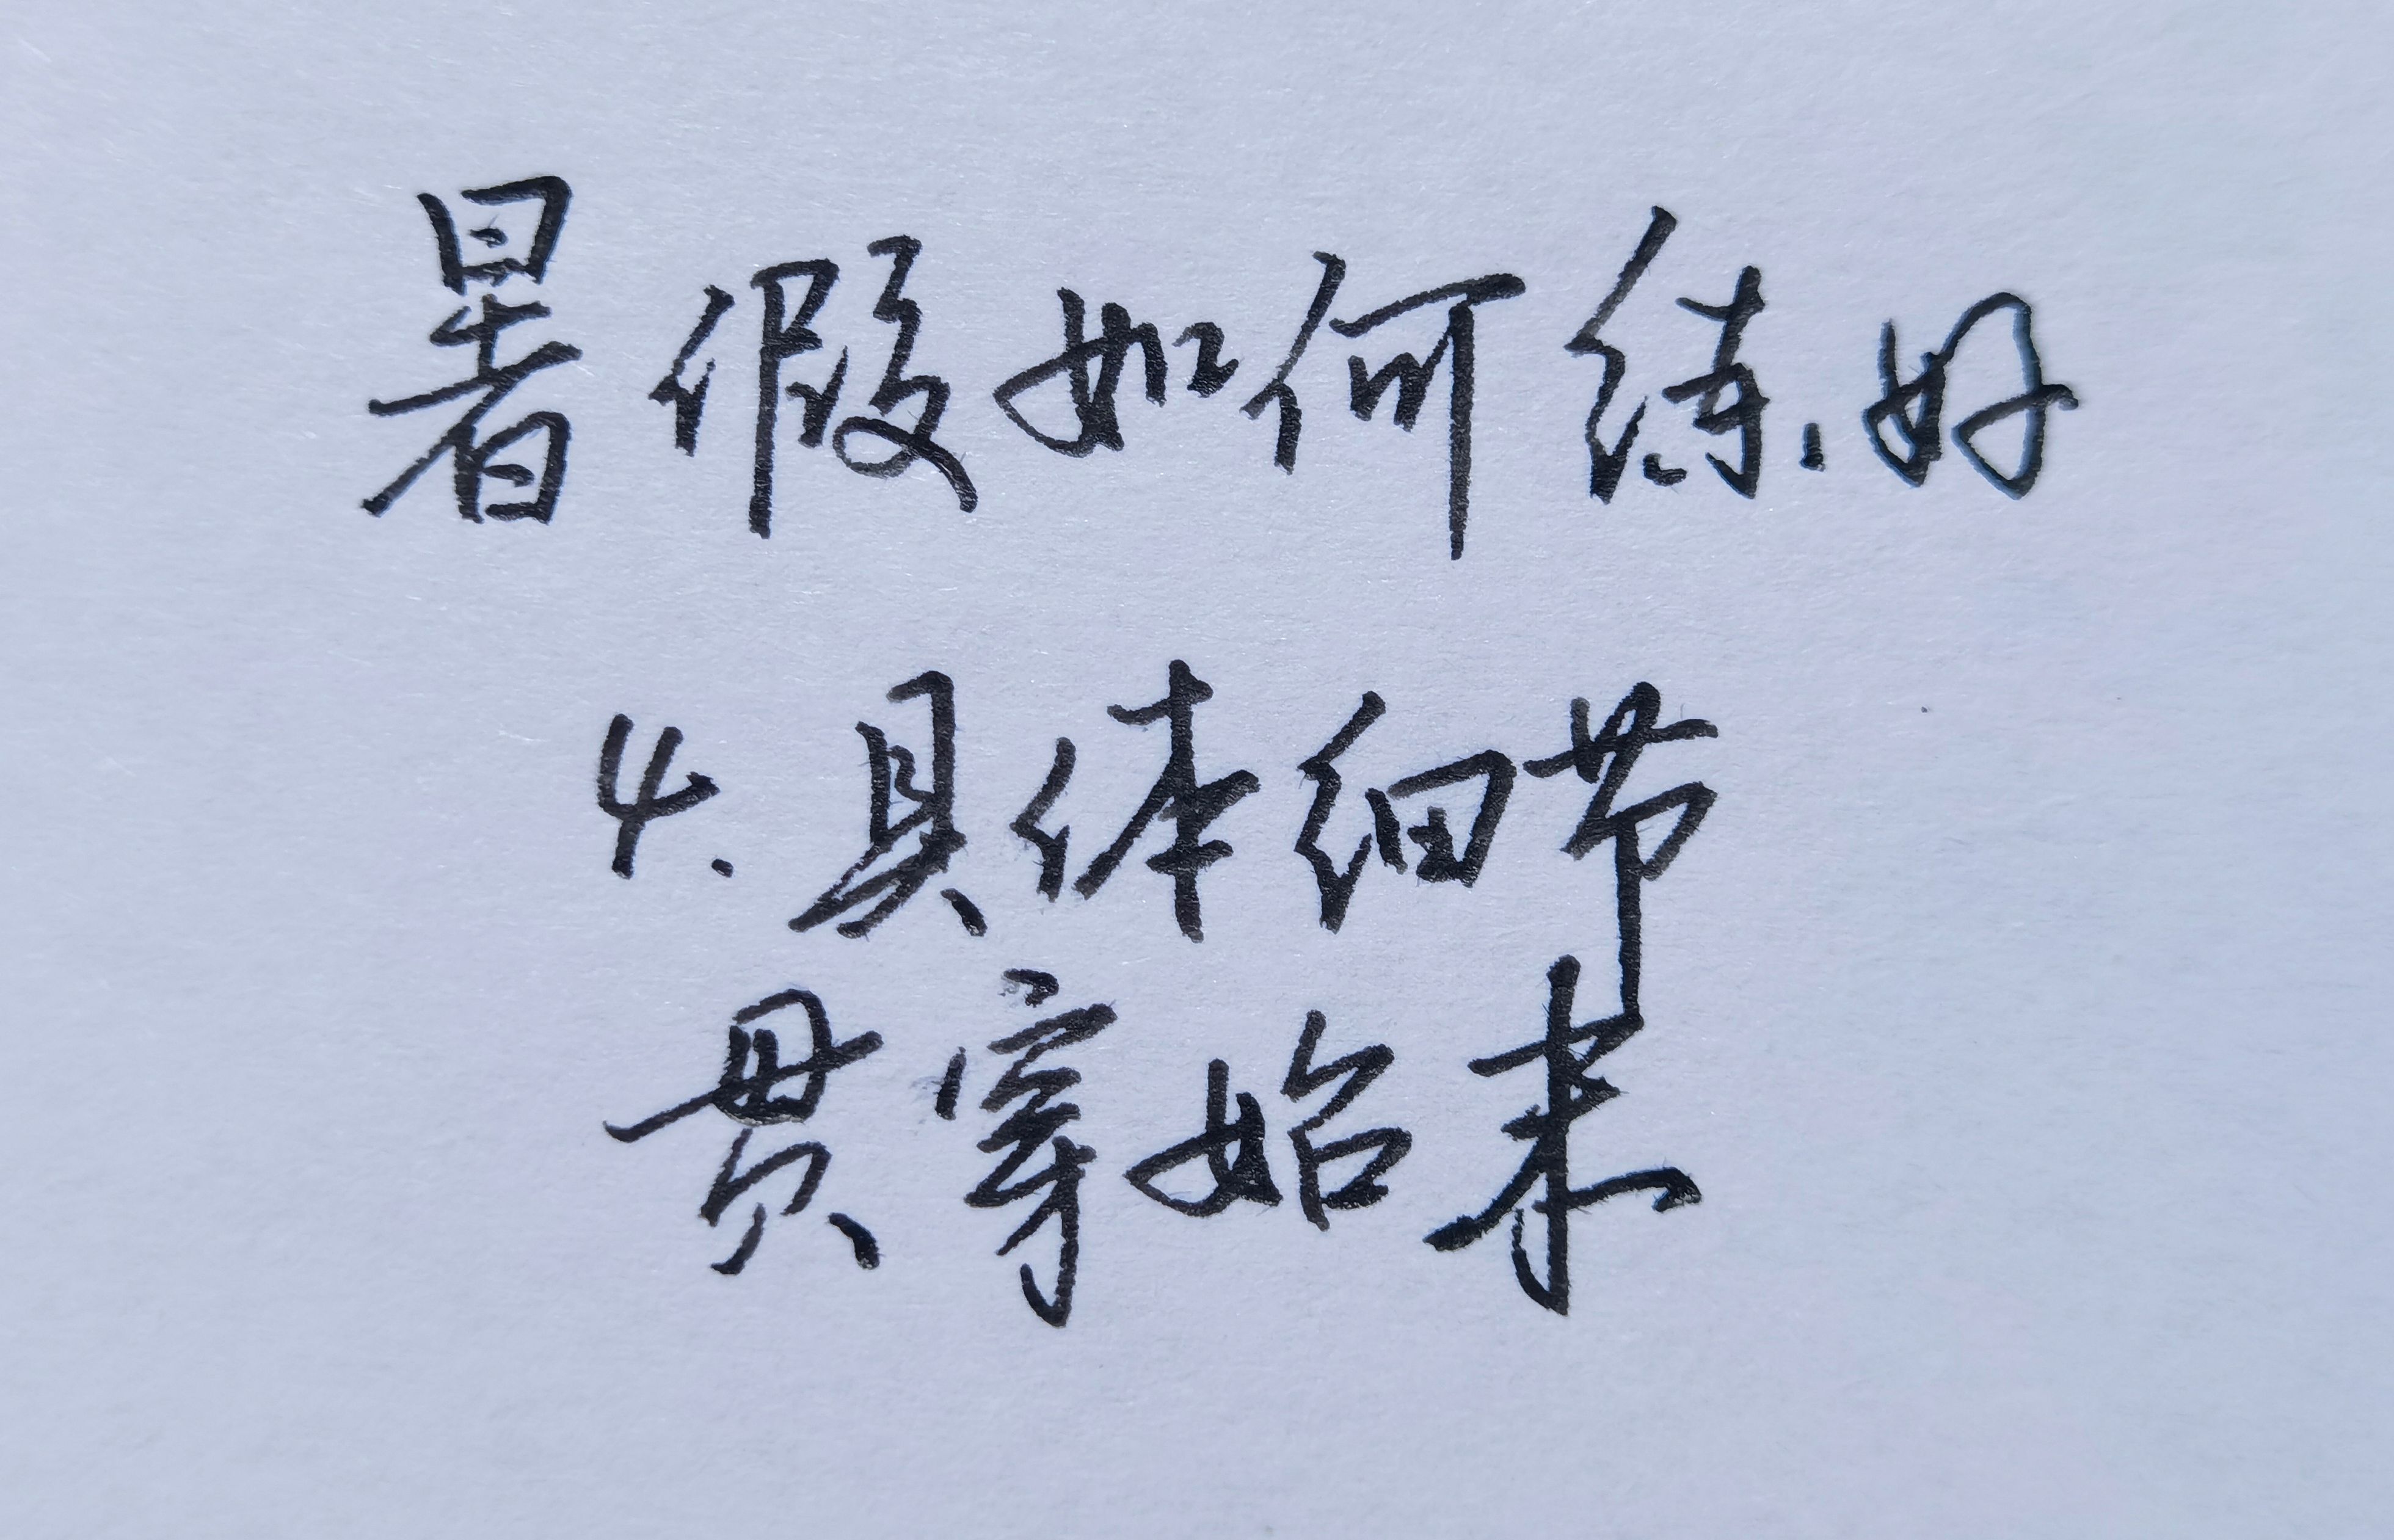 暑假如何练好
4.具体细节
贯穿始末